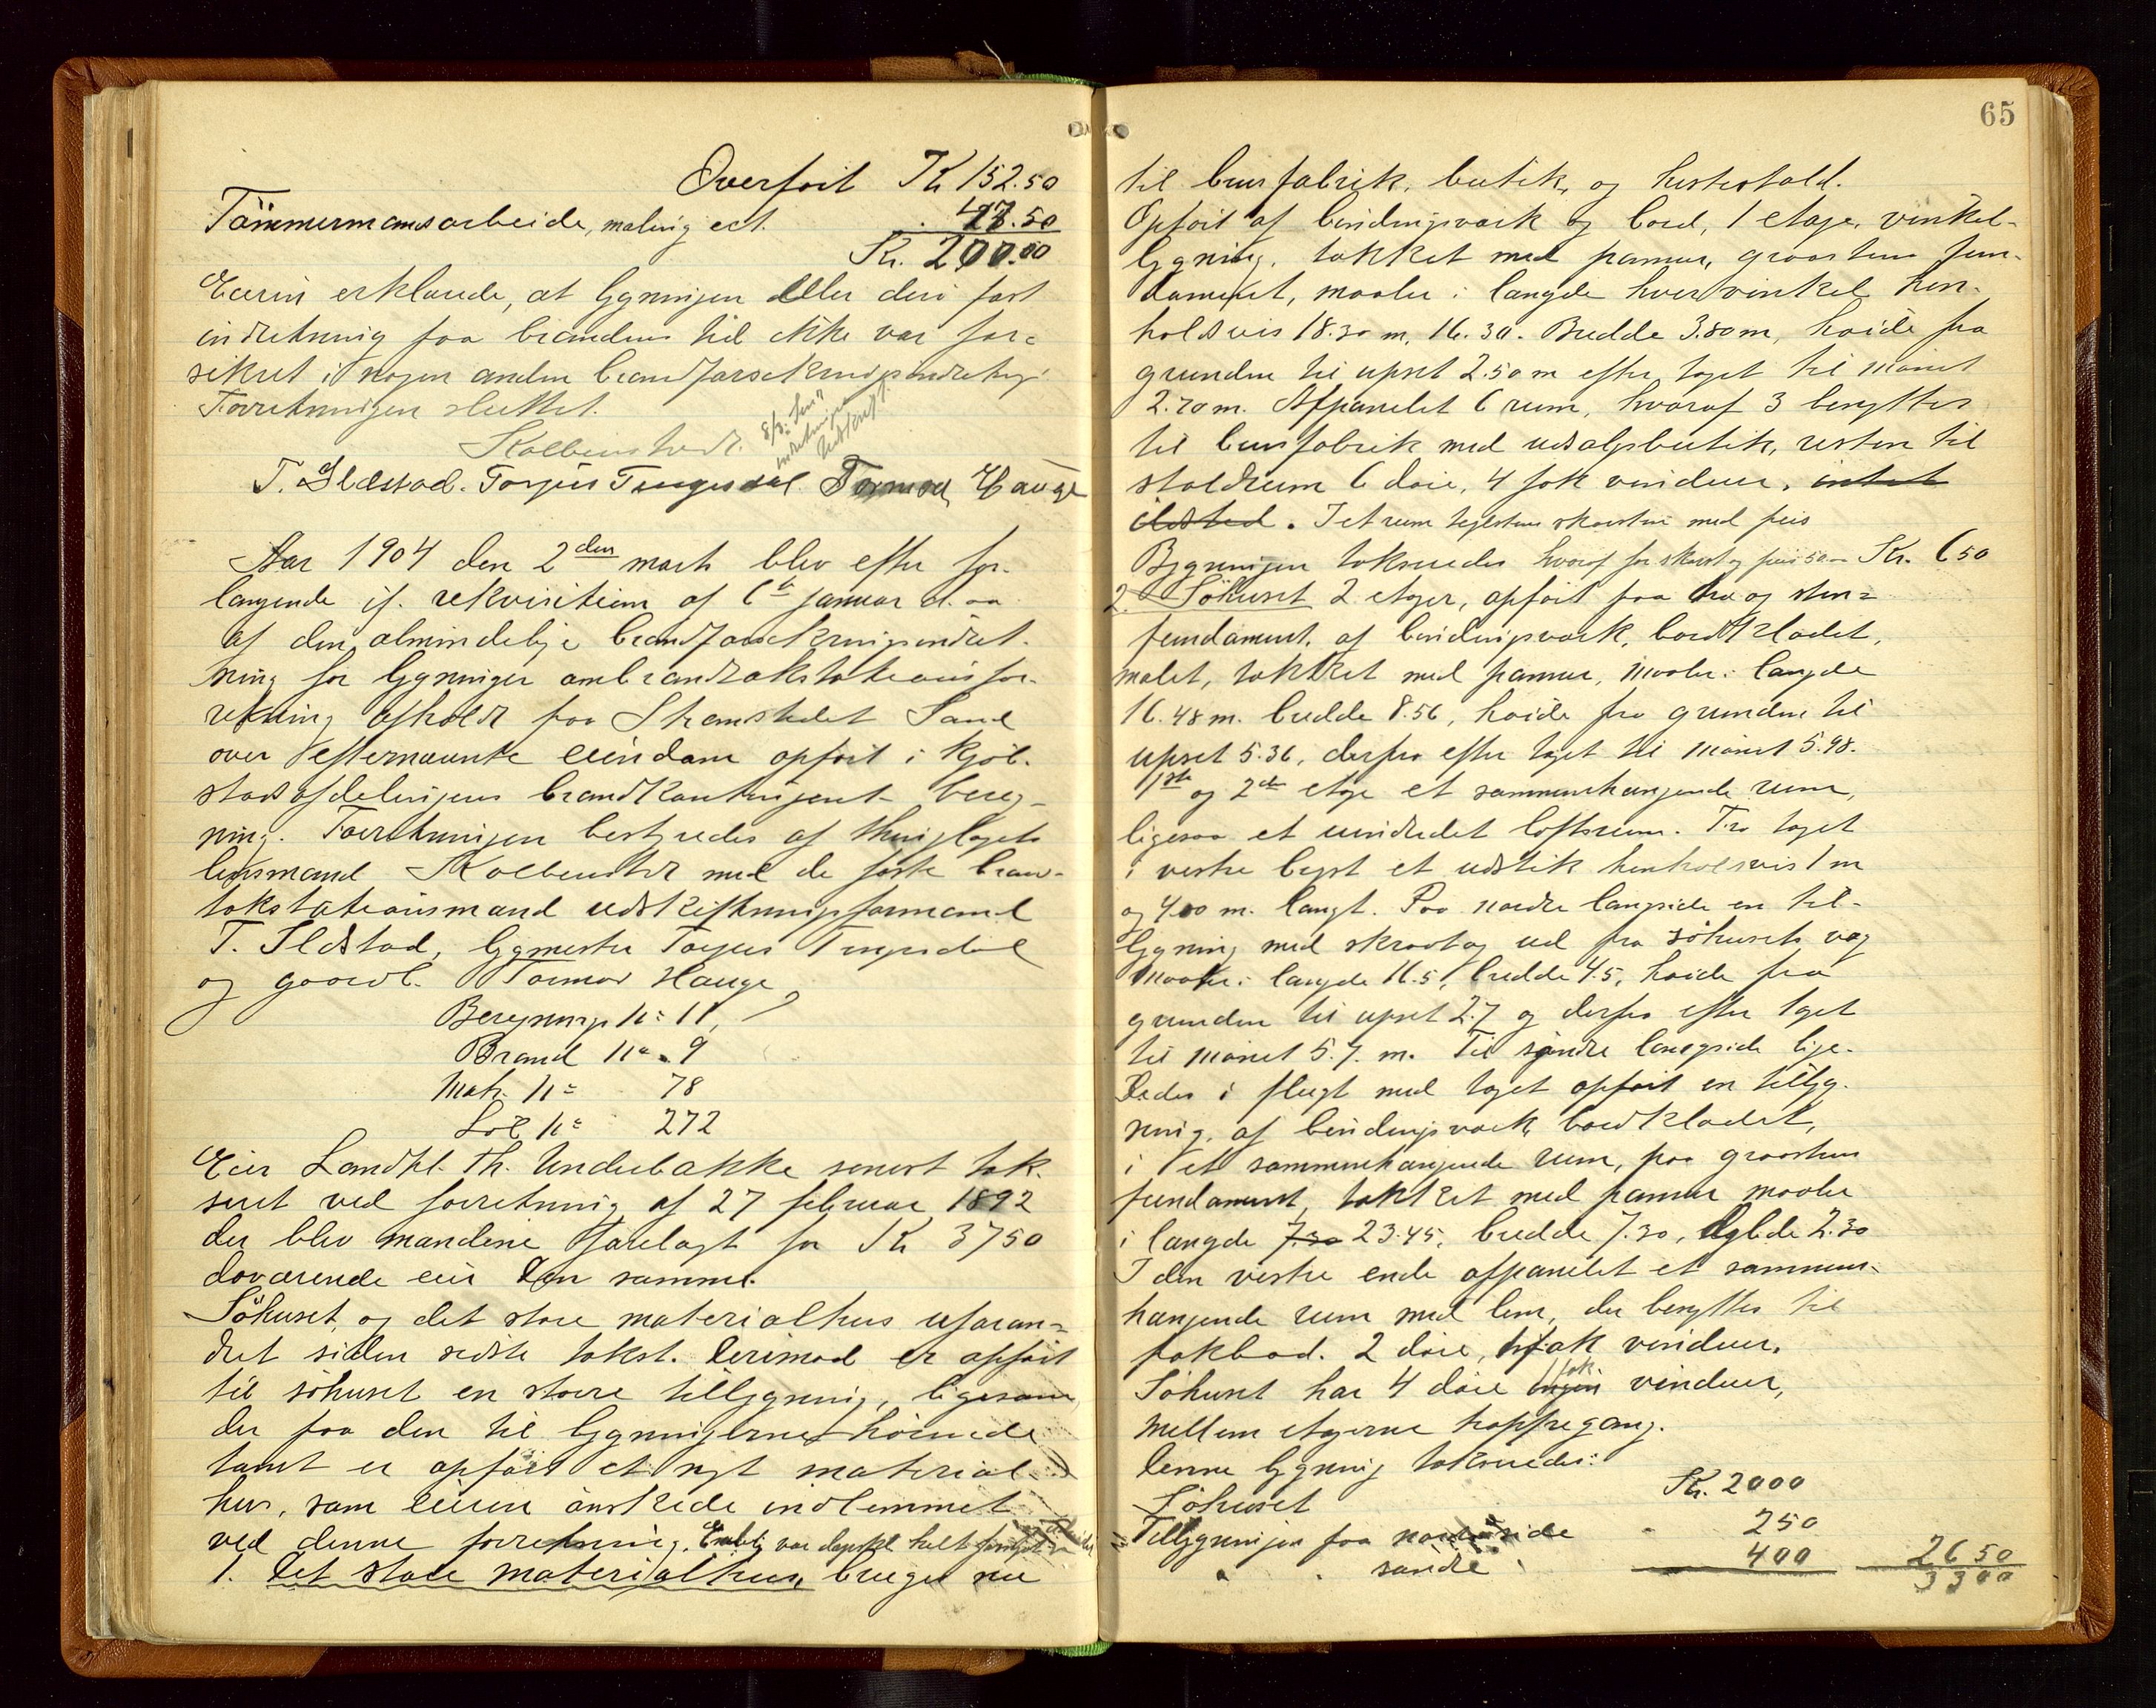 Overført Kr 152.50
Tømmermandsarbeide, maling ect. 47.50
Kr. 200.00
Eieren erklærede, at bygningen eller deri fast
indretning paa brandens tid ikke var for-
sikret i nogen anden brandforsikringsindretning
Forretningen sluttet.
Kolbenstvedt.
T. Ildstad. Torjus Tengesdal. Tormod Hauge
Aar 1904 den 2den marts blev efter for-
langende if. rekvisition af 6te januar d. aa
af den almindelige brandforsikringsindret-
ning for bygninger ombrandtakstationsfor-
retning afholdt paa Strandstedet Sand
over efternævnte eiendom opført i kjøb-
stadsafdelingens brandkontingent bereg-
ning. Forretningen bestyredes af thinglagets
lensmand Kolbenstvedt med de faste bran-
takstationsmænd udskiftningsformand
T. Ildstad, bygmester Torjus Tengesdal
og gaardb. Tormod Hauge
Beregnings No 11,
Brand No 9
Matr. No 78
Løb No 272
Eier Landhl. Th. Underbakke senest tak-
seret ved forretning af 27 februar 1892
der blev mændene forelagt for Kr 3750
daværende eier den samme.
Søhuset, og det store materialhus uforan-
dret siden sidste takst. Derimod er opført
til søhuset en større tilbygning, ligesom
der paa den til bygningerne hørende
tomt er opført et nyt material-
hus, som eieren ønskede indlemmet
ved denne forretning.
1. Det store materialhus, bruges nu
65
til brusfabrik, butik, og hestestald.
Opført af bindingsværk og bord, 1 etage, vinkel-
bygning, tækket med panner, graastens fun-
dament, maaler i længde hver vinkel hen-
holdsvis 18.30 m, 16.30. Bredde 3.80 m, høide fra
grunden til upset 2.50 m efter taget til mønet
2.70 m. Afpanelet 6 rum, hvoraf 3 benyttes
til brusfabrik med udsalgsbutik, resten til
staldrum 6 døre, 4 fok vinduer, intet
ildsted. I et rum teglstens skorsten med peis
Bygningen takseredes hvoraf for skorst og peis 50- Kr. 650
2. Søhuset 2 etager, opført paa træ og sten-
fundament, af bindingsværk, bordklædet,
malet, tækket med panner, maaler i længde
16.48 m. bredde 8.56, høide fra grunden til
upset 5.36, derfra efter taget til mønet 5.98.
1ste og 2den etage et sammenhængende rum,
ligesaa et uindredet loftsrum. Fra taget
i vestre bygt et udstik henholdsvis 1 m
og 4.00 m. langt. Paa nordre langside en til-
bygning med skraatag ud fra søhusets væg
maaler i længde 16.5, bredde 4.5, høide fra
grunden til upset 2.7 og derfra efter taget
til mønet 5.7. m. Til søndre langside lige-
ledes i flugt med taget opført en tilbyg-
ning, af bindingsværk bordklædet,
i et sammenhængende rum, paa graastens
fundament, tækket med panner maaler
i længde 7.30 23.45, bredde 7.30, 2.30
I den vestre ende afpanelet et sammen-
hængende rum med lem, der benyttes til
pakbod. 2 døre, fak vinduer.
Søhuset har 4 døre ingen 1 fak. vinduer,
mellem etagerne trappegang.
Denne bygning takseredes:
Søhuset Kr. 2000
Tilbygningen paa nordre side " 250
" " søndre " 400 2650
3300